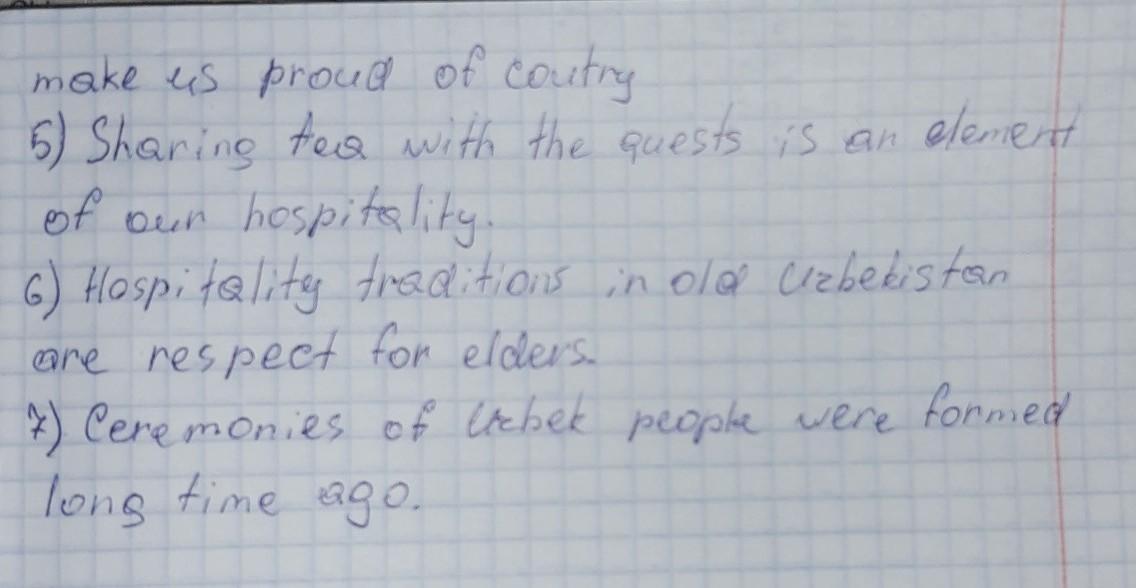 make us proud of coutry
5) Sharing tea with the quests is an element
of our hospitality.
6) Hospitality traditions in old Uzbekistan
are respect for elders.
7) Ceremonies of Uzbek people were formed
long time ago.